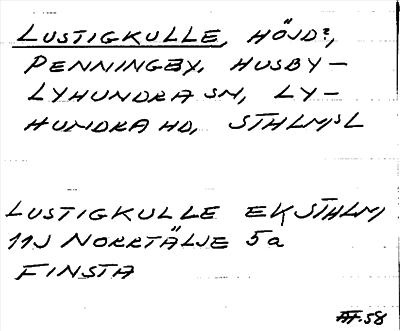 LUSTIGKULLE, HÖJD?,
PENNINGBY, HUSBY-
LYHUNDRA SN, LY-
HUNDRA HD, STHLMS L
LUSTIGKULLE EK STHLM
11J NORRTÄLJE 5a
FINSTA